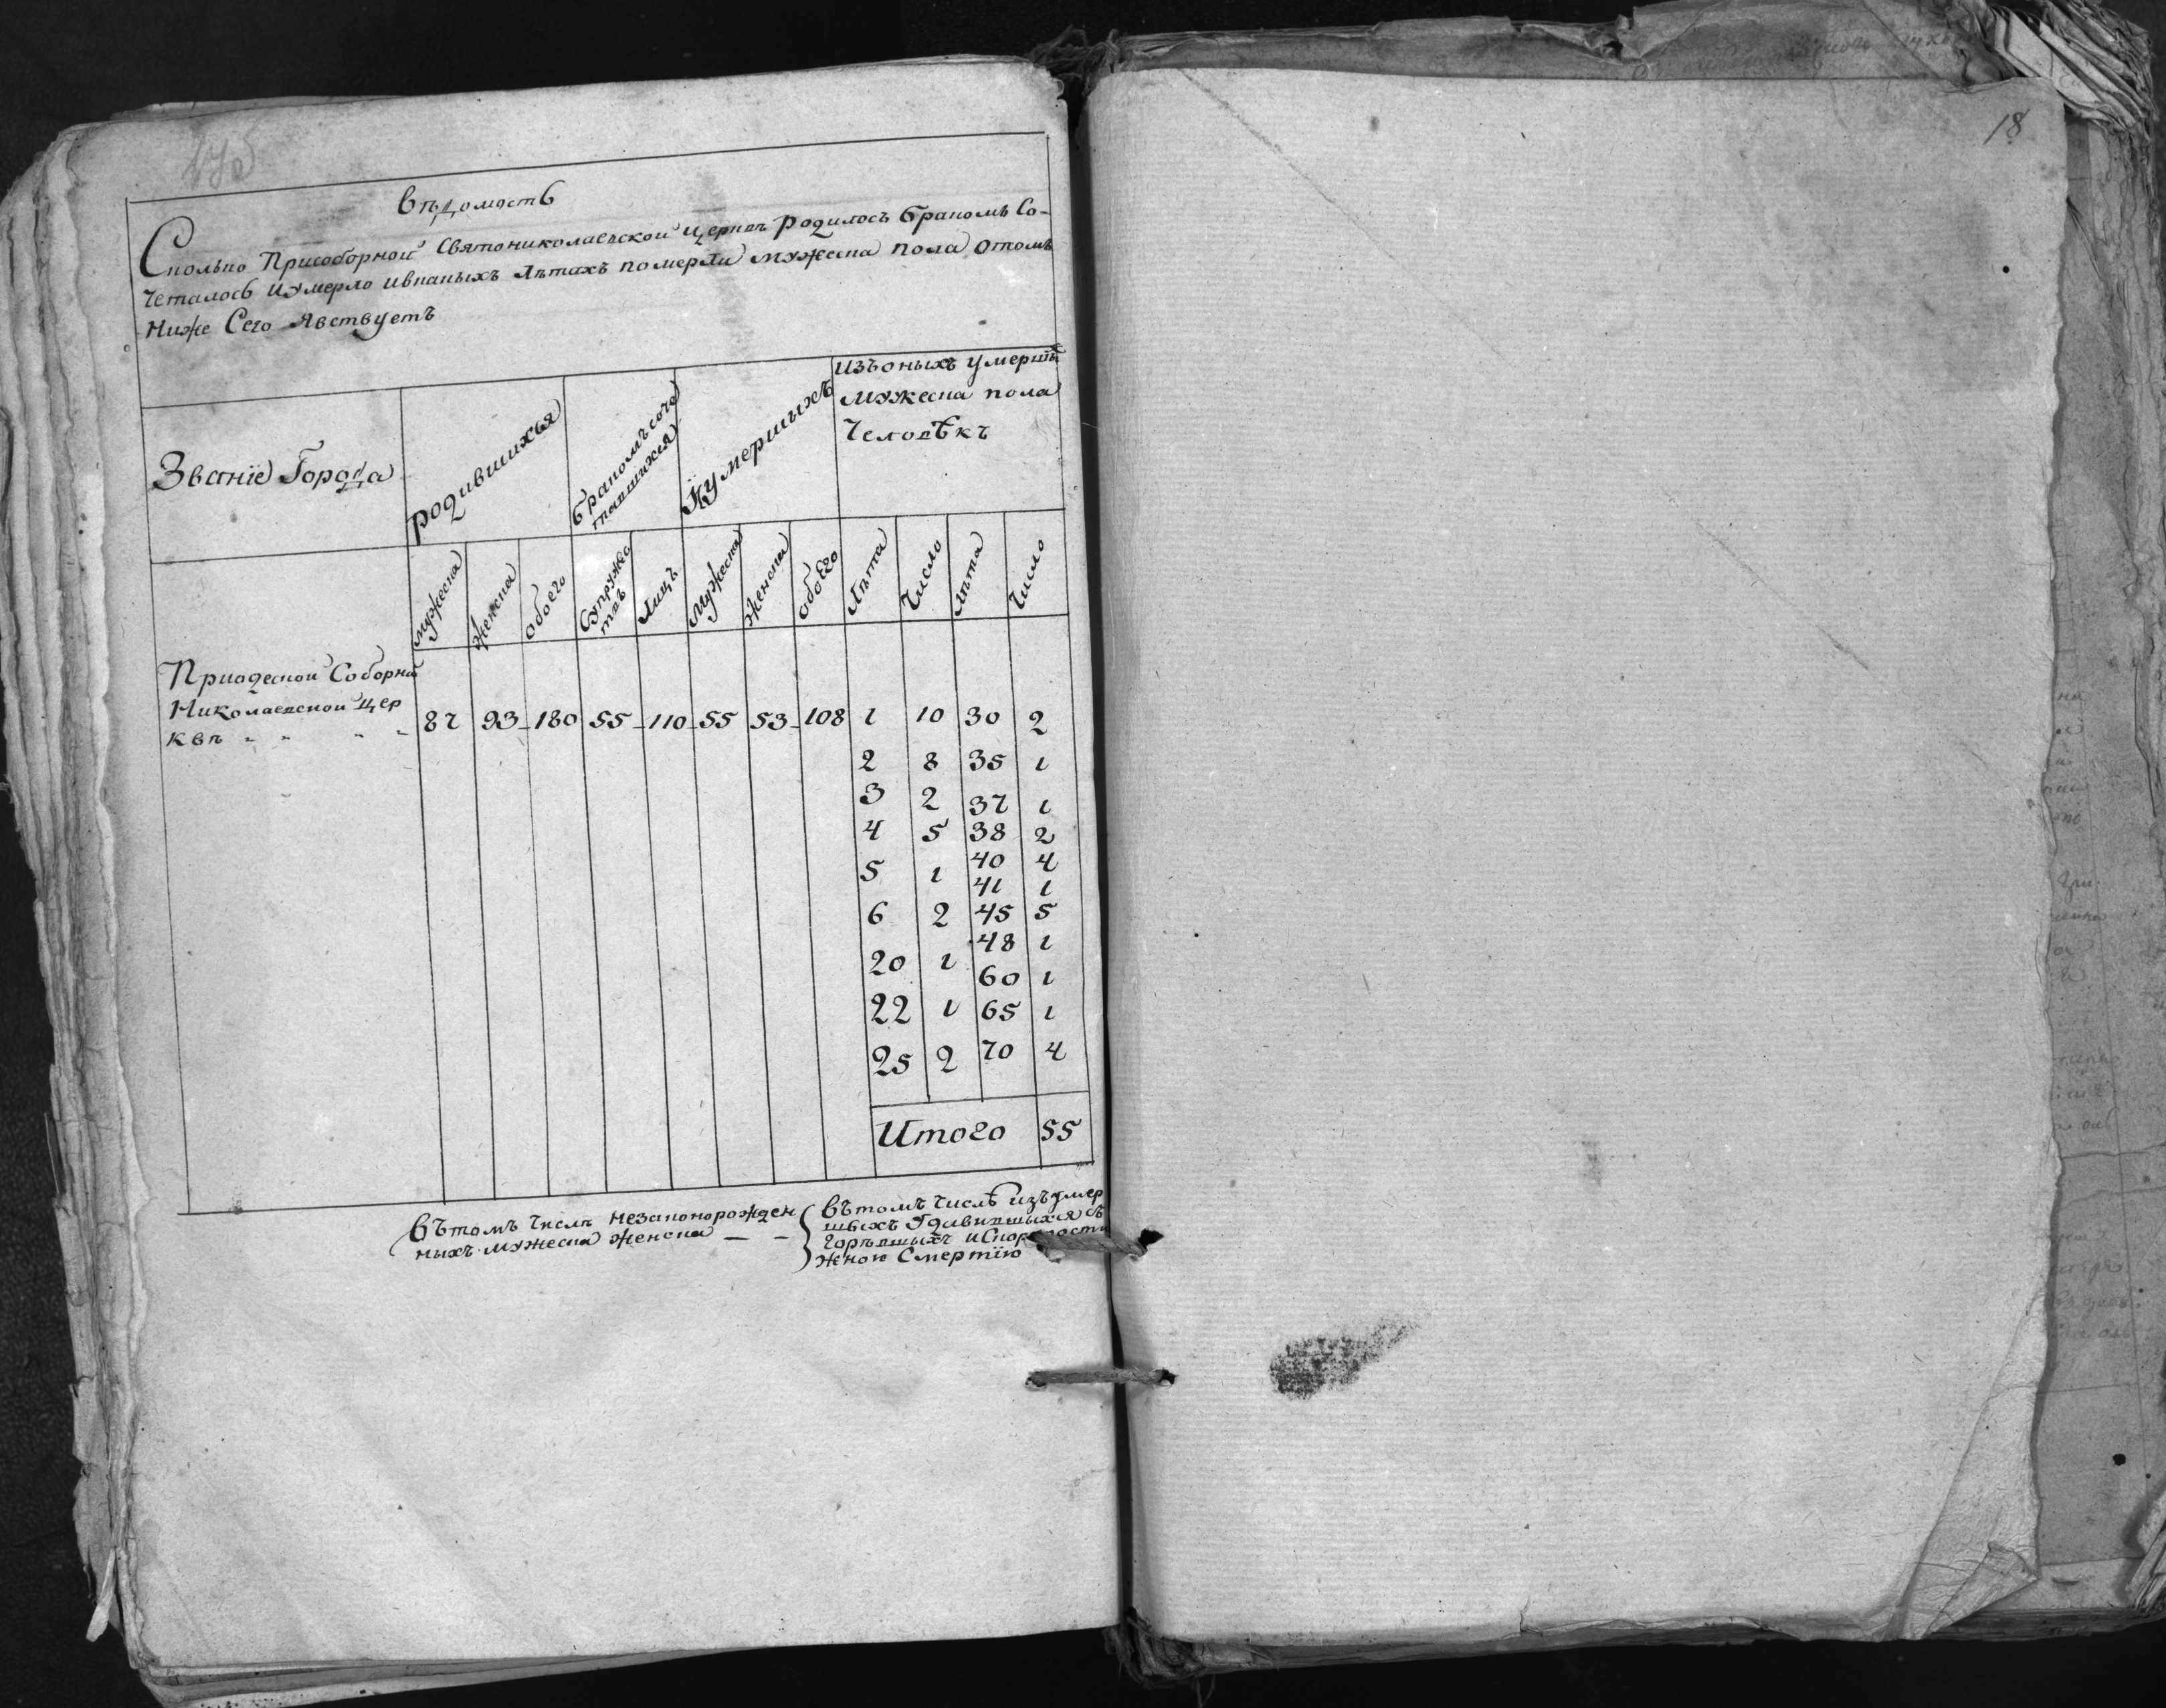 18
Вѣдомость
Сколько Присоборной Святониколаевской церквѣ родилось бракомъ Со-
четалось и умерло ивкакихъ лѣтахъ померли мужеска пола отомъ
Ниже Сего Явствуетъ
Званїе Города
родившихся
бракомъ соче
тавшихся
умершихъ
изъоныхъ умершихъ
мужеска пола
Человѣкъ
мужеска
женска
обоего
Супружес
твъ
Лицъ
Мужеска
женска
обоего
Лѣта
Число
лѣта
Число
Приодеской Соборной
Николаевской цер
квѣ
87 93 180 55 110 55 53 108 1 10 30 2
2 8 35 1
3 2 37 1
4 5 38 2
40 4
5 1 41 1
6 2 45 5
48 1
20 1 60 1
22 1 65 1
25 2 70 4
Итого 55
Вътомъ числѣ незаконорожден
ныхъ мужеска женска — —
Вътомъ числѣ изъумер
шихъ Удавившыхся съ
горѣвшыхъ и
жною Смертїю